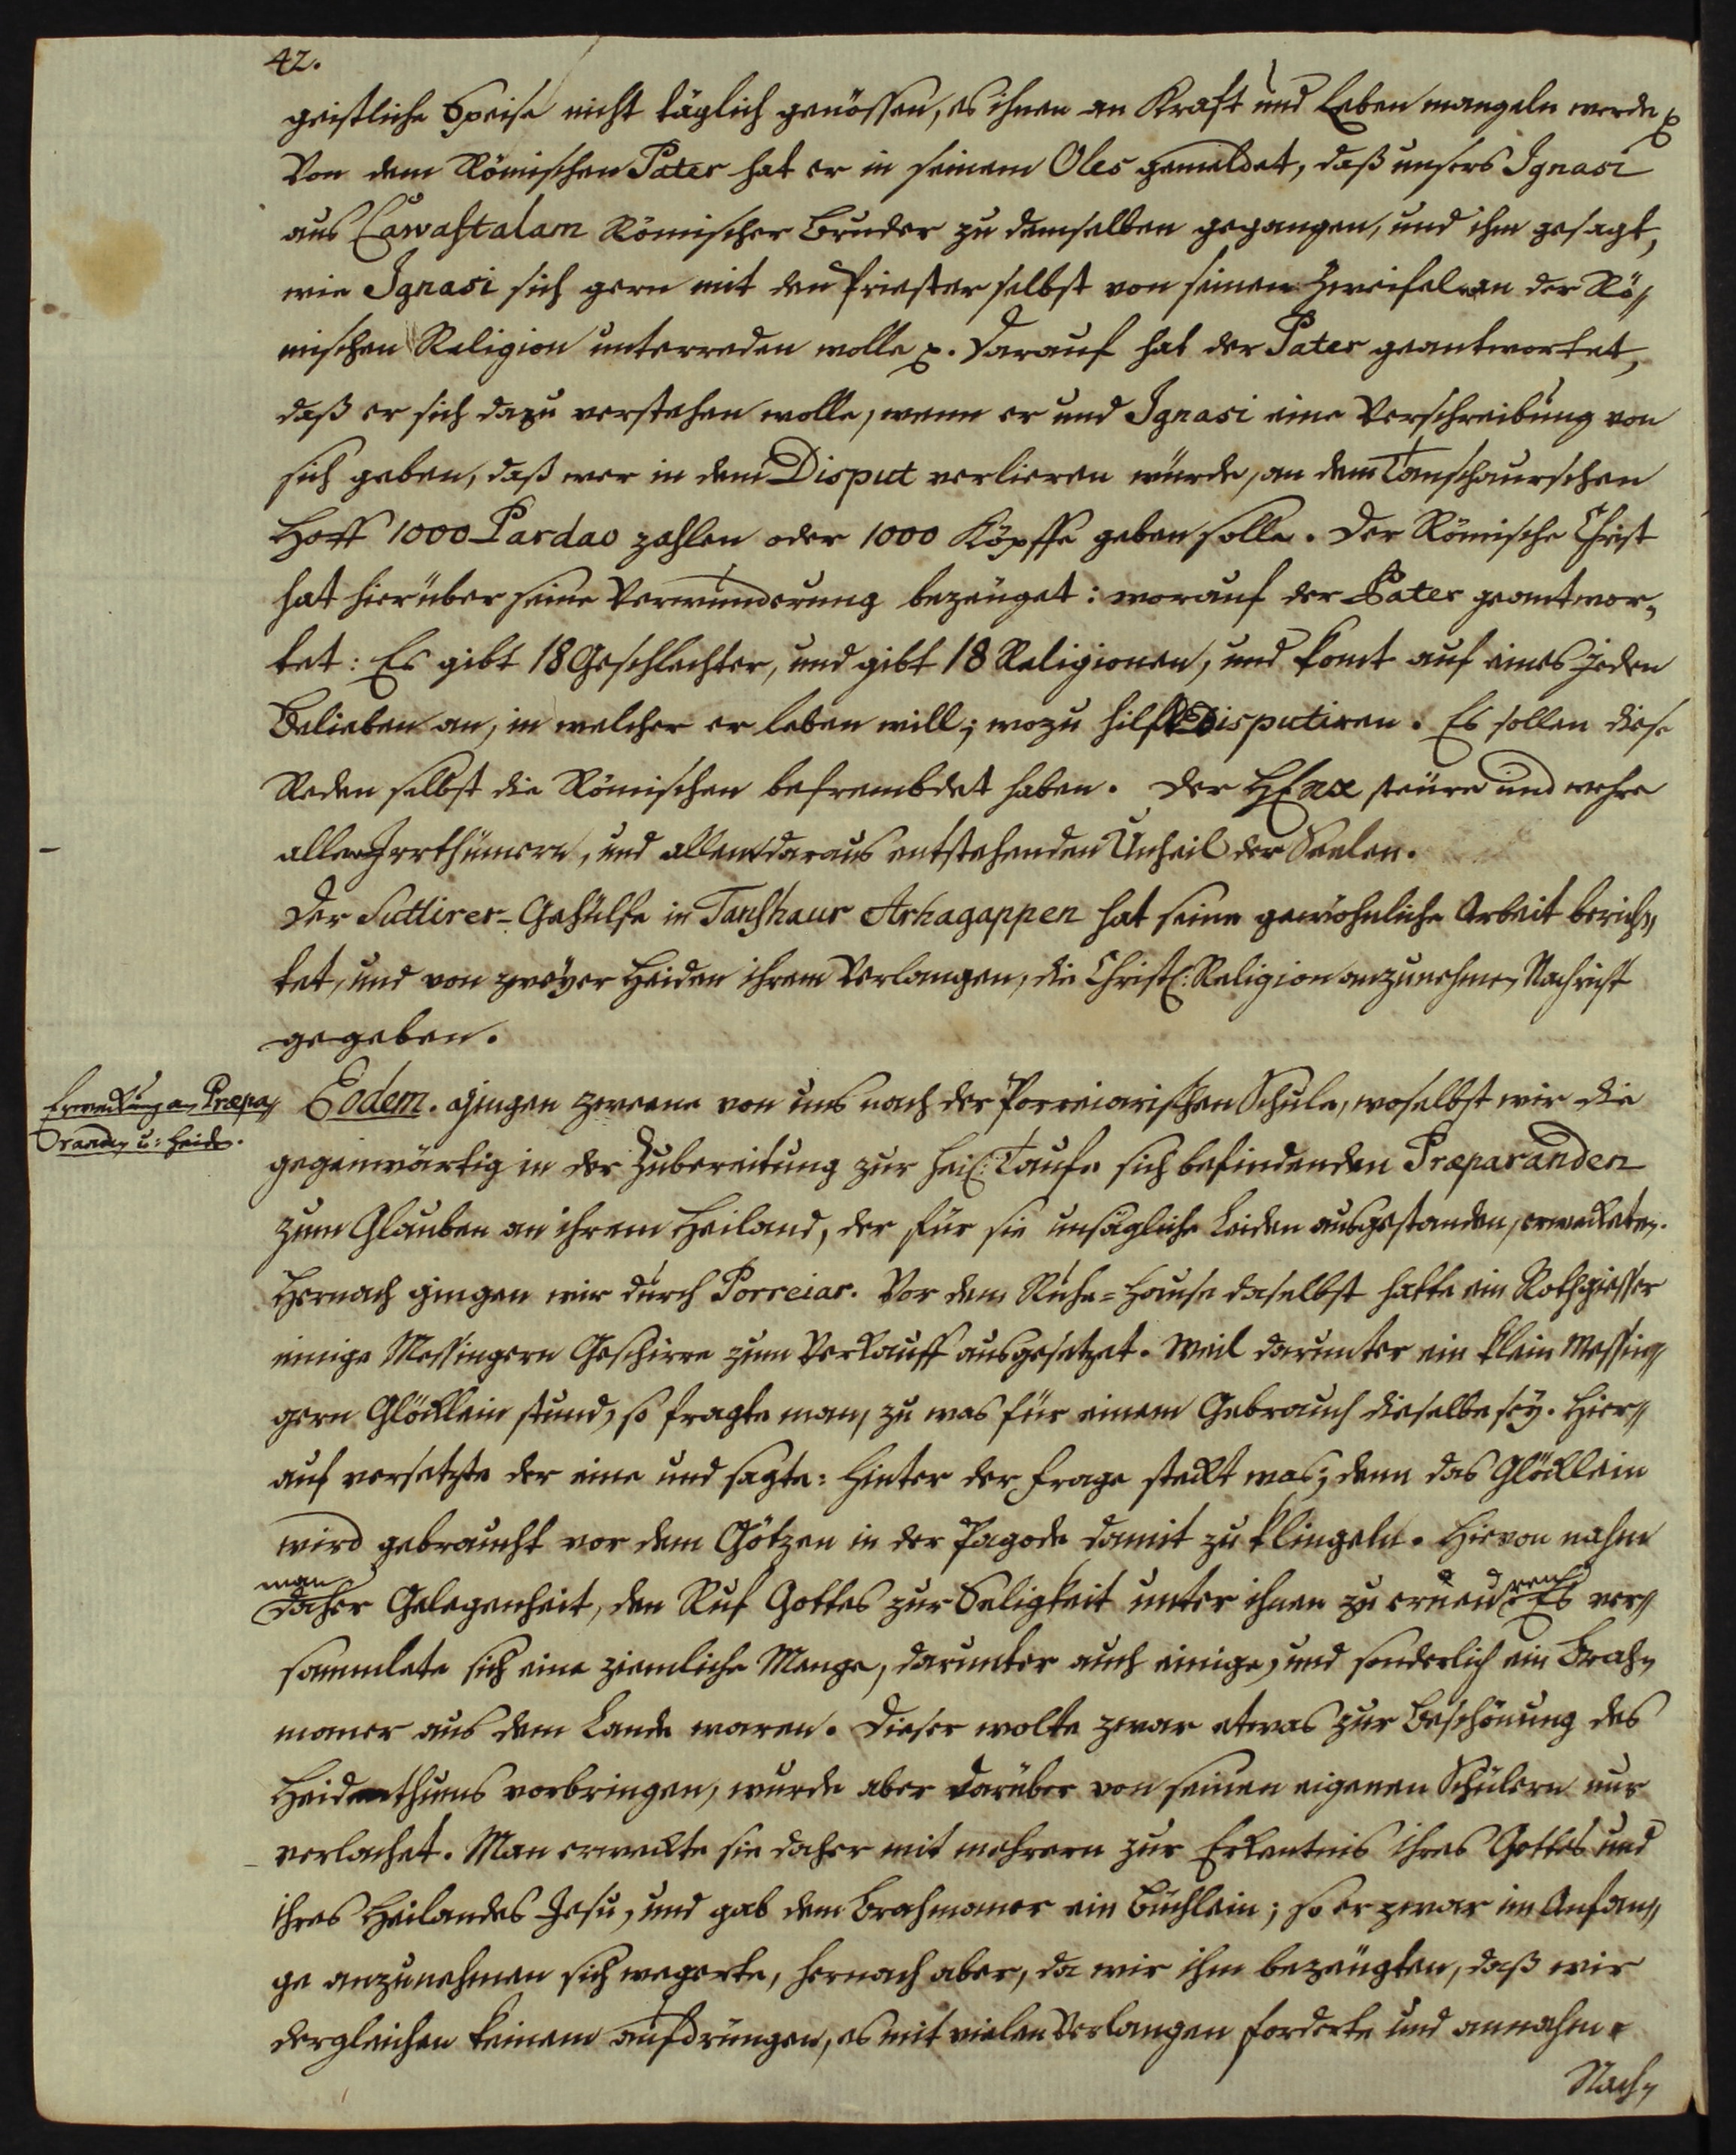 42.
geistliche Speise nicht täglich genössen, es ihnen an Kraft und Leben mangeln werde p
Von dem Römischen Pater hat er in seinem Oles gemeldet, daß unsers Ignasi
aus Cawastalam Römischer Bruder zu demselben gegangen, und ihm gesagt,
wie Ignasi sich gern mit den Priester selbst von seinen Zweifel an der Rö„
mischen Religion unterreden wolle p. Darauf hat der Pater geantwortet,
daß er sich dazu verstehen wolle, wenn er und Ignasi eine Verschreibung von
sich geben, daß wer in dem Disput verlieren würde, an dem Tanschaurschen
Hoff 1000 Pardao zahlen oder 1000 Köpffe geben solle. Der Römische Christ
hat hierüber seine Verwunderung bezeuget: worauf der Pater geantwor„
tet: Es gibt 18 Geschlechter, und gibt 18 Religionen, und komt auf eines jeden
Belieben an, in welcher er leben will; wozu hilft Disputiren. Es sollen diese
Reden selbst die Römischen befrembdet haben. Der HErr steure und wehre
allen Irrthümern, und allem daraus entstehenden Unheil der Seelen.
Der Suttirer-Gehülfe in Tanshaur Arhagappen hat seine gewöhnliche Arbeit berich„
tet, und von zweyer Heiden ihrem Verlangen, die Christl: Religion anzunehmen, Nachricht
gegeben.
Erweckung an Præpa„
randen u: Heiden.
Eodem. gingen zweene von uns nach der Porreiarischen Schule, woselbst wir die
gegenwärtig in der Zubereitung zur heil: Taufe sich befindenden Præparanden
zum Glauben an ihrem Heiland, der für sie unsägliche Leiden ausgestanden, erweckten.
Hernach gingen wir durch Porreiar. Vor dem Ruhe=Hause daselbst hatte ein Rothgiesser
einige Messingern Geschirre zum Verkauff ausgesetzet. Weil darunter ein klein Messin„
gern Glöcklein stund, so fragte man, zu was für einem Gebrauch dieselbe sey. Hier„
auf versetzte der eine und sagte: Hinter der Frage steckt was; denn das Glöcklein
wird gebraucht vor dem Götzen in der Pagode damit zu klingeln. Hievon nahm
man
daher Gelegenheit, den Ruf Gottes zur Seligkeit unter ihnen zu erneuren. Es ver„
sammlete sich eine ziemliche Menge, darunter auch einige, und sonderlich ein Brah„
maner aus dem Lande waren. Dieser wolte zwar etwas zur Beschönung des
Heidenthums vorbringen, wurde aber darüber von seinen eigenen Schülern nur
verlachet. Man erweckte sie daher mit mehrern zur Erkentnis ihres Gottes und
ihres Heilandes Jesu, und gab dem Brahmaner ein Büchlein; so er zwar im Anfan„
ge anzunehmen sich wegerte, hernach aber, da wir ihm bezeugten, daß wir
dergleichen keinem aufdrüngen, es mit vielen Verlangen forderte und annahm.
Nach„